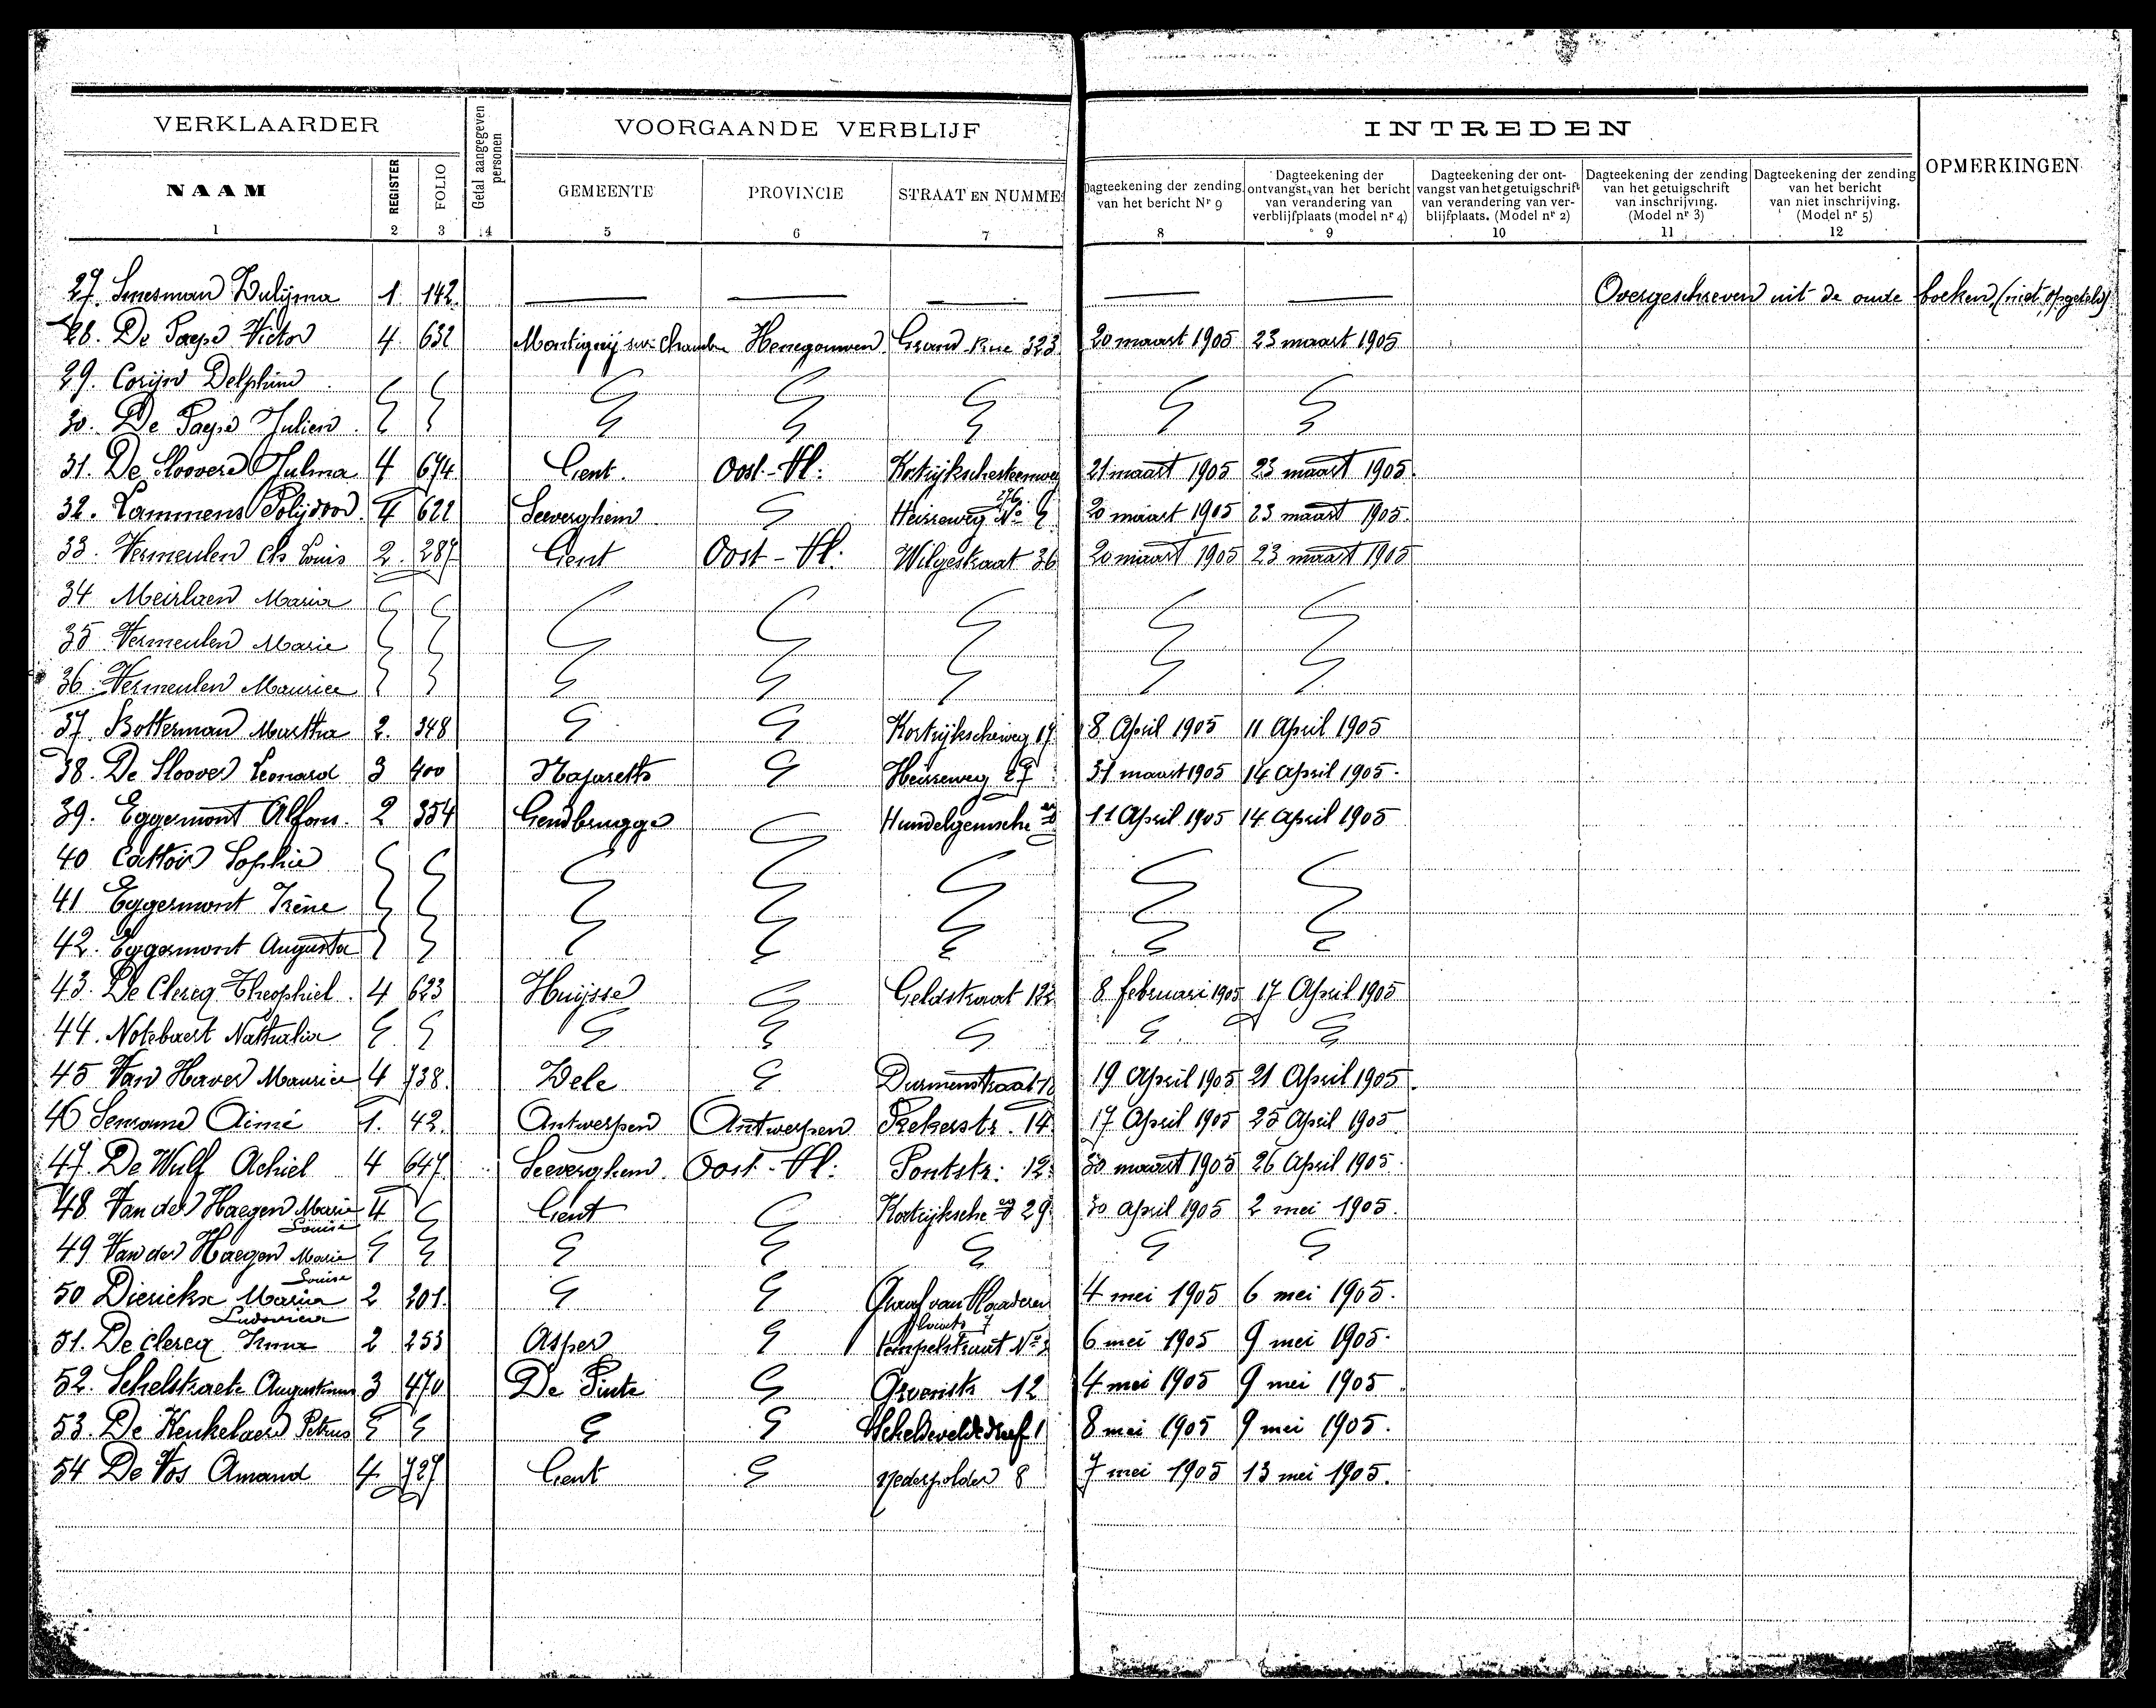 VERKLAARDER Getal aangegeven personen VOORGAANDE VERBLIJF INTREDEN OPMERKINGEN
NAAM REGISTER FOLIO GEMEENTE PROVINCIE STRAAT EN NUMME
Dagteekening der zending van het bericht Nr 9
Dagteekening der ontvangst van het bericht van verandering van verblijfplaats (model nr 4)
Dagteekening der ontvangst van het getuigschrift van verandering van verblijfplaats. (Model nr 2)
Dagteekening der zending van het getuigschrift van inschrijving. (Model nr 3)
Dagteekening der zending van het bericht van niet inschrijving. (Model nr 5)
1 2 3 4 5 6 7 8 9 10 11 12
27. Smesman Zulijma 1. 142. — — — — — Overgeschreven uit de oude boeken (niet opgeteld)
28. De Paepe Victor 4. 632 Montignij sur Chambre Henegouwen Grand Rue 323 20 maart 1905 23 maart 1905
29. Corijn Delphine
30. De Paepe Julien
31. De Sloovere Julma 4 674 Gent. Oost-Vl: Kortrijkschesteenweg 276 21 maart 1905 23 maart 1905.
32. Lammens Polijdoor 4 622 Seeverghem Heirweg No 20 maart 1905 23 maart 1905.
33. Vermeulen Ch Louis 2. 287 Gent Oost-Vl: Wilgestraat 36 20 maart 1905 23 maart 1905
34 Meirlaen Maria
35 Vermeulen Marie
36. Vermeulen Maurice
37 Botterman Martha 2. 348 Kortrijkscheweg 17 8 April 1905 11 April 1905
38. De Sloover Leonard 3 400 Nazareth Heirweg 27 31 maart 1905 14 April 1905.
39. Eggermont Alfons. 2 354 Gendbrugge Hundelgemsche 11 April 1905 14 April 1905
40 Cattoir Sophie
41 Eggermont Irène
42. Eggermont Augusta
43. De Clercq Theophiel. 4 623 Huijsse Geldstraat 122 8 februari 1905 17 April 1905
44. Notebaert Nathalia
45 Van Haver Maurice 4 738. Zele Durmenstraat 19 April 1905 21 April 1905.
46 Aimé 1. 42. Antwerpen Antwerpen 14 17 April 1905 25 April 1905
47. De Wulf Achiel 4 647. Seeverghem. Oost-Vl: Pontstr: 12. 30 maart 1905 26 April 1905.
48 Van der Haegen Marie Louise 4 Gent Kortrijksche 29 30 april 1905 2 mei 1905.
49 Van der Haegen Marie Louise
50 Dierickx Maria Ludovica 2 201. Graaf van Vlaanderen 7 4 mei 1905 6 mei 1905.
51. De clercq Irma 2 253 Asper tempelstraat No 6 mei 1905 9 mei 1905.
52. Schelstraete Augustinus 3 470 De Pinte Groenistr 12 4 mei 1905 9 mei 1905
53. De Keukelaere Petrus Scheldeveldedreef 1 8 mei 1905 9 mei 1905.
54 De Vos Amand 4. 727 Gent nederpolder 8 7 mei 1905 13 mei 1905.